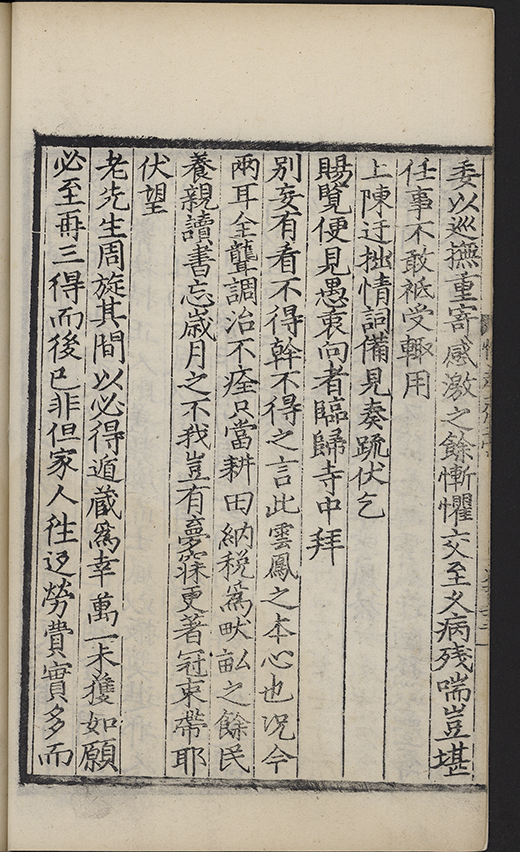 委以巡撫重寄感激之餘慚懼交至久病殘喘豈堪
任事不敢祗受輙用
上陳迂拙情詞備見奏疏伏乞
賜覽便見愚衷向者臨歸寺中拜
別妄有看不得幹不得之言此雲鳳之本心也况今
兩耳全聾調治不痊只當耕田納稅爲畎畝之餘民
養親讀書忘歲月之不我豈有夢寐更著冠束帶耶
伏望
老先生周旋其間以必得遁藏爲幸萬一未獲如願
必至再三得而後已非但家人徃返勞費實多而